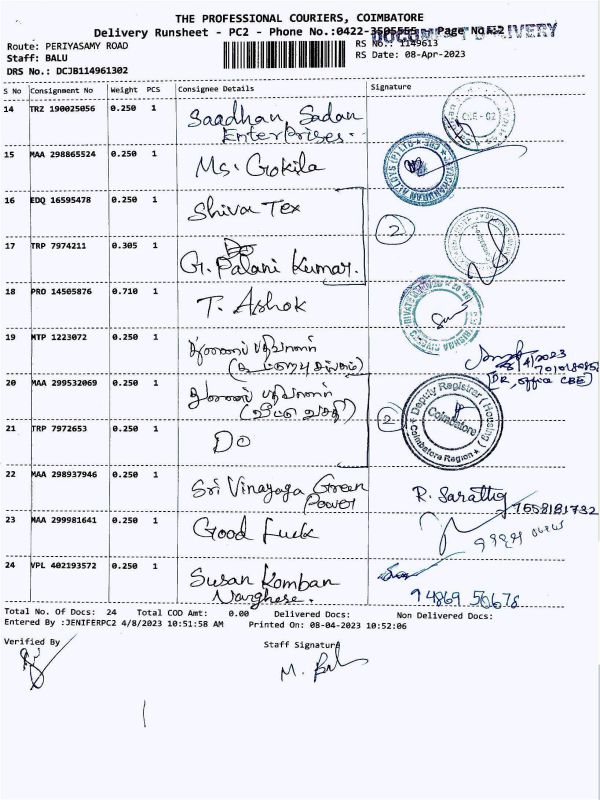 THE PROFESSIONAL COURIERS, COIMBATORE
Delivery Runsheet - PC2 - Phone No.:0422-3505555 Page No.:2
DOCUMENT DELIVERY
Route: PERIYASAMY ROAD
RS No.: 1149613
Staff: BALU
RS Date: 08-Apr-2023
DRS No.: DCJB114961302
S No Consignment No Weight PCS Consignee Details Signature
14 TRZ 190025056 0.250 1 Saadhan, Sadan
Enterprises.
CBE - 02
15 MAA 298865524 0.250 1 Ms. Gokila
16 EDQ 16595478 0.250 1 Shiva Tex
2
17 TRP 7974211 0.305 1 G. Palani Kumar.
18 PRO 14505876 0.710 1 T. Ashok
19 MTP 1223072 0.250 1 துணைப்பதிவாளர்
20 MAA 299532069 0.250 1 துணைப் பதிவாளர்
(வீட்டு வசதி)
(DR, office CBE)
Deputy Registrar (Housing)
Coimbatore
Coimbatore Region
2
21 TRP 7972653 0.250 1 DO
22 MAA 298937946 0.250 1 Sri Vinayaga Green
Power
R. Sarathy
7658181732
23 MAA 299981641 0.250 1 Good Luck
24 VPL 402193572 0.250 1 Susan Komban
Varghese.
94869 50678
Total No. Of Docs: 24 Total COD Amt: 0.00 Delivered Docs: Non Delivered Docs:
Entered By :JENIFERPC2 4/8/2023 10:51:58 AM Printed On: 08-04-2023 10:52:06
Verified By Staff Signature